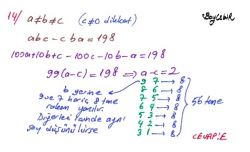 14/ a≠b≠c (c≠0 dikkat)
abc - cba = 198
100a+10b+c - 100c - 10b - a = 198
99(a-c) = 198 ⇒ a-c = 2
b yerine
9 ve 7 hariç 8 tane
rakam yazılır.
Diğerleri içinde aynı
şey düşünülürse
9 7 → 8
8 6 → 8
7 5 → 8
6 4 → 8
5 3 → 8
4 2 → 8
3 1 → 8
56 tane
CEVAP:E